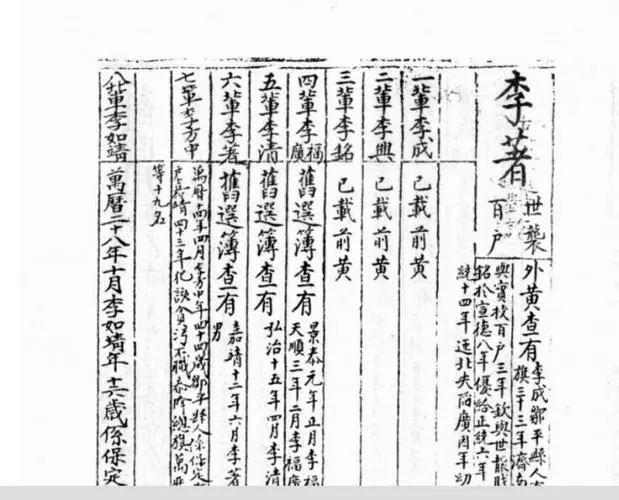 李著
世襲
百戶
外黃查有
李成鄒平縣人
旗三十三年濟
與實授百戶三年欽與世襲
銘於宣德八年優給正統六年
統十四年迤北失陷廣因年幼
一輩李成 已載前黃
二輩李興 已載前黃
三輩李銘 已載前黃
四輩李福廣 舊選簿查有
景泰元年正月李福
天順三年二月李福廣
五輩李清 舊選簿查有
弘治十五年四月李清
六輩李著 舊選簿查有
嘉靖十二年六月李著
男
七輩李方中
萬曆十四年四月李方中年四十四歲鄒平縣人係保定
嘉靖四十三年 貪污不職 總旗萬曆
等十九名
八輩李如靖 萬曆二十八年十月李如靖年十六歲係保定